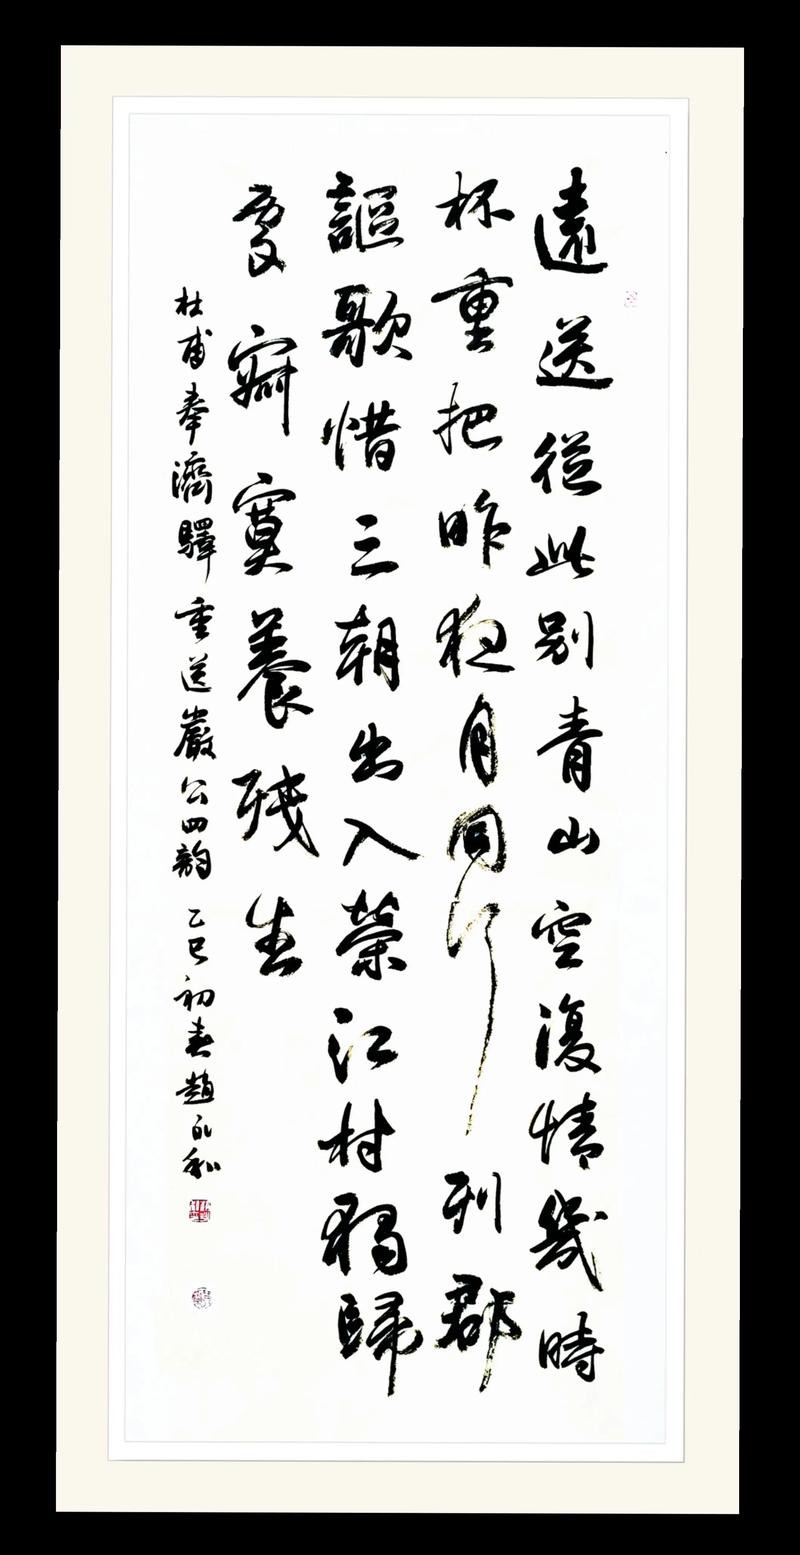 遠送從此別青山空復情幾時
杯重把昨夜月同行列郡
謳歌惜三朝出入榮江村獨歸
處寂寞養殘生
杜甫奉濟驛重送嚴公四韵乙巳初春趙永和